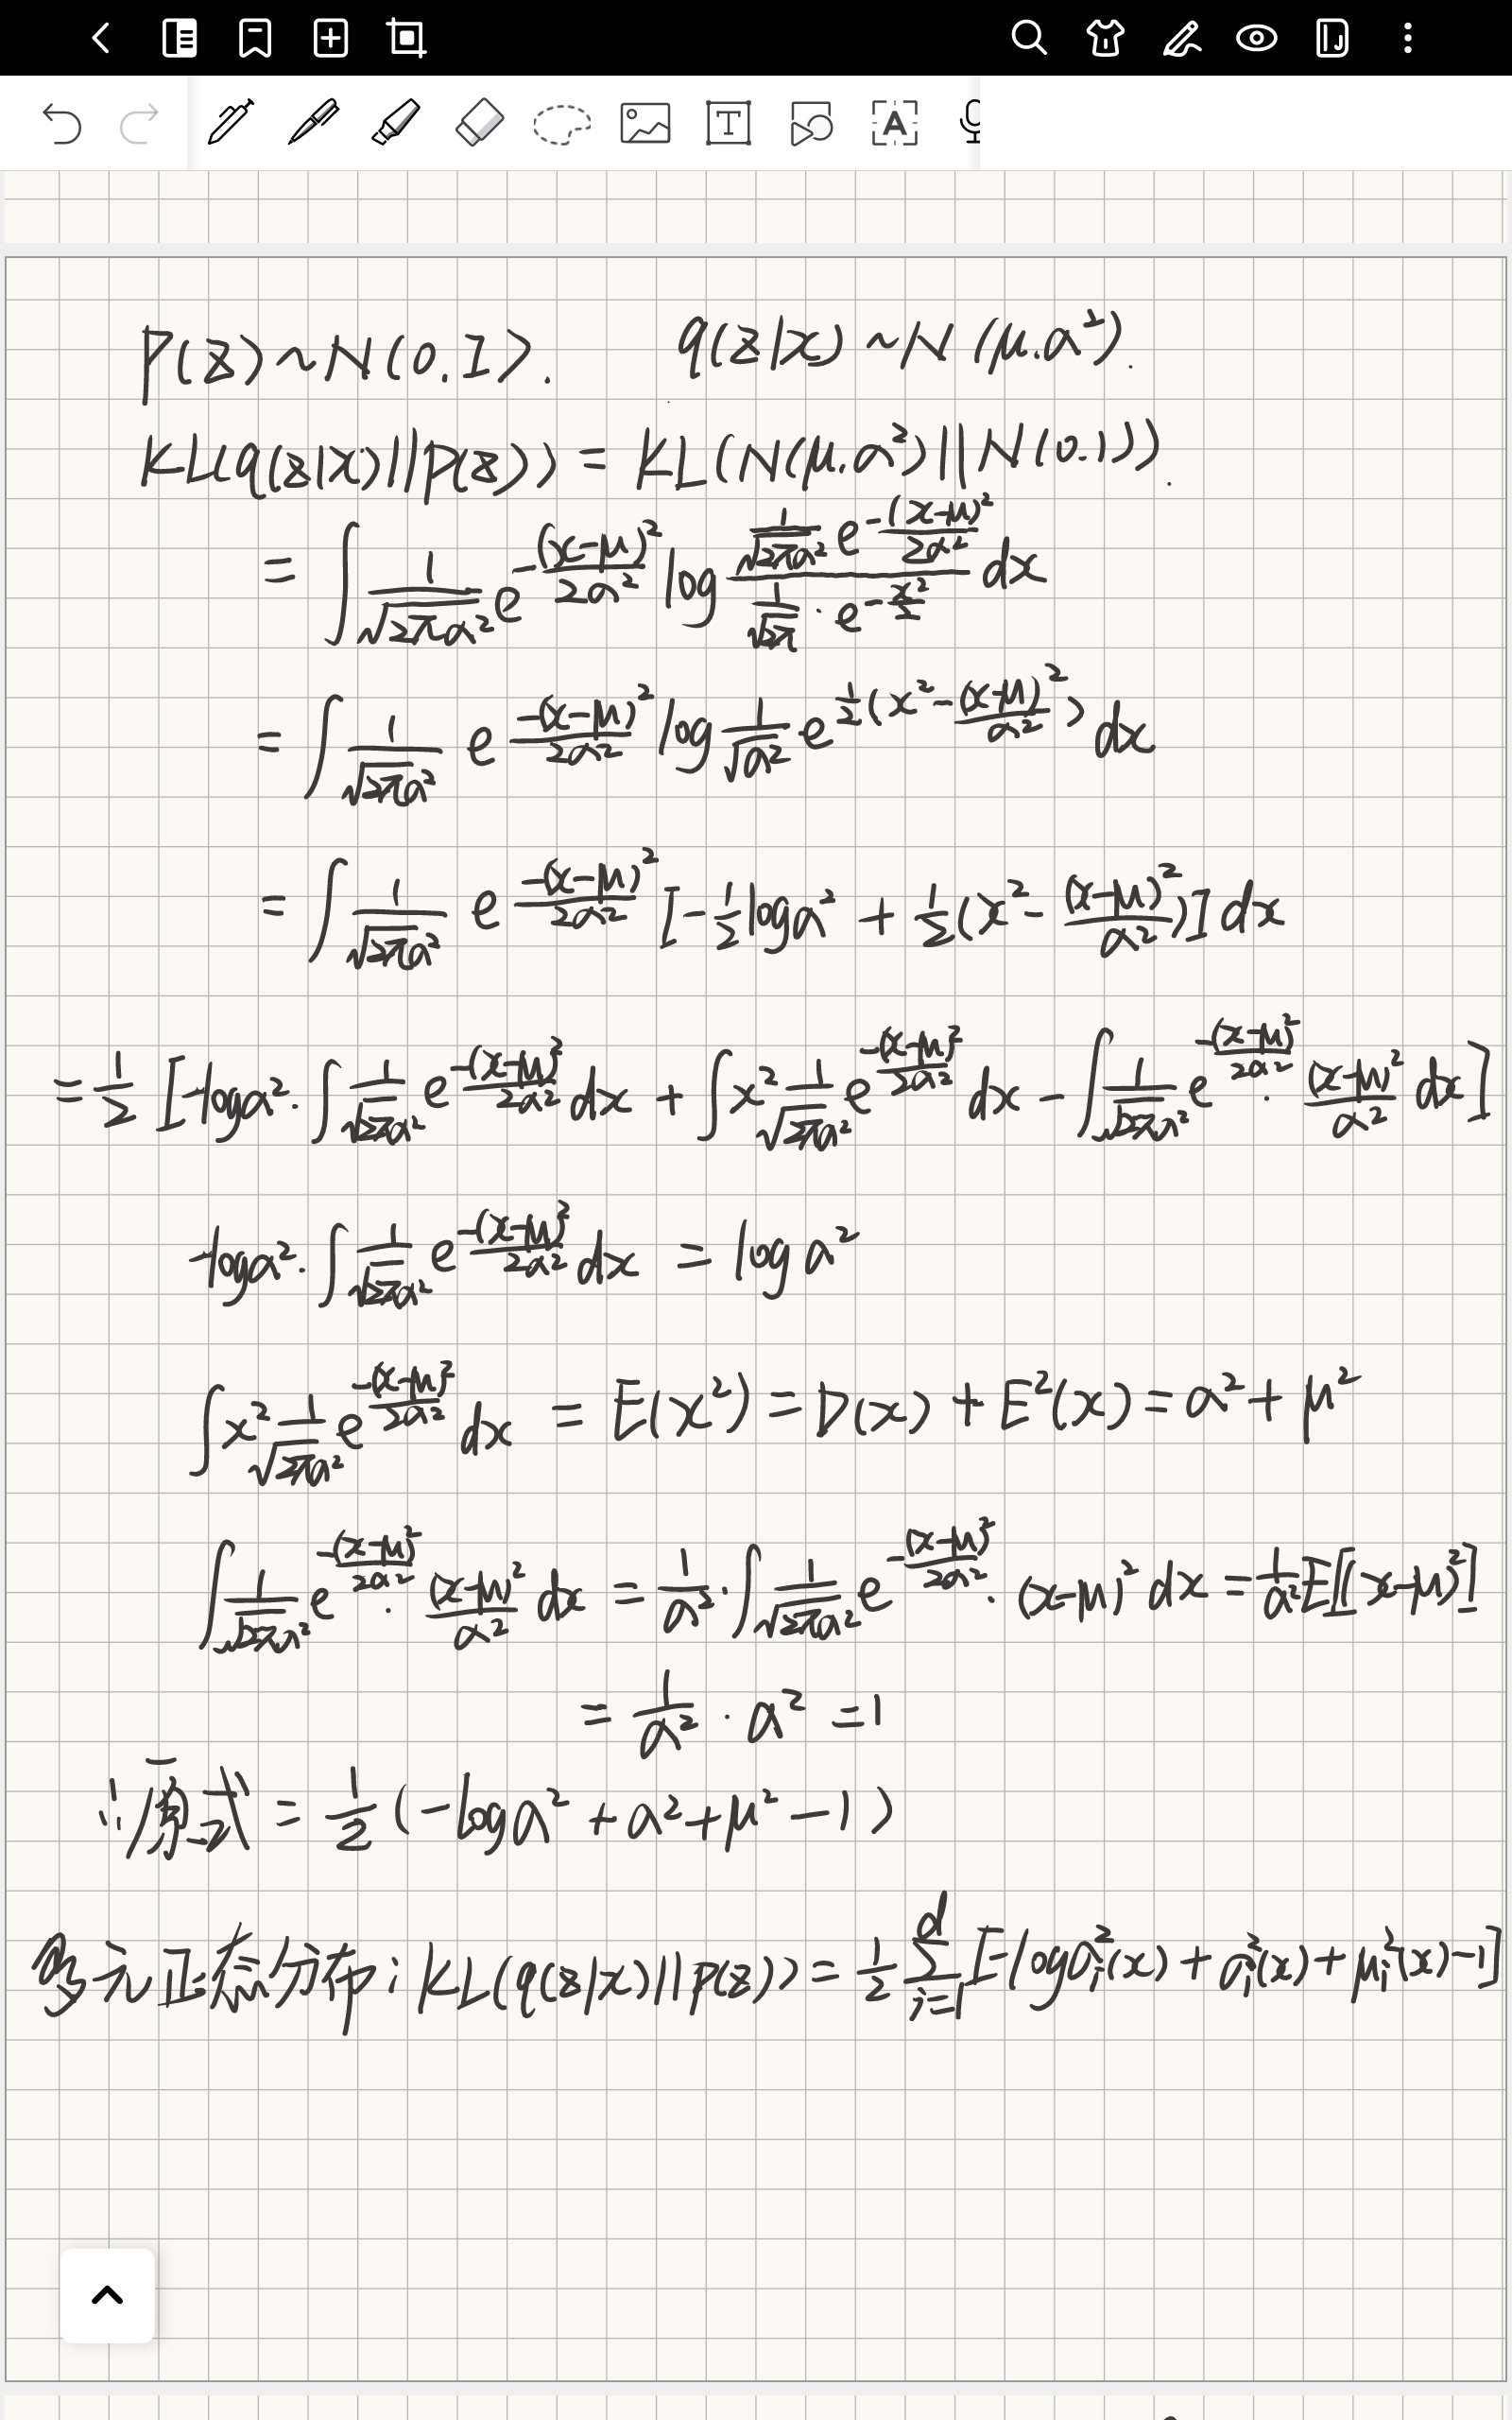 P(z)~N(0.I). q(z|x)~N(μ.σ²).
KL(q(z|x)||p(z)) = KL(N(μ.σ²)||N(0.1)).
= ∫ 1/√(2πσ²) e^(-(x-μ)²/2σ²) log (1/√(2πσ²) e^(-(x-μ)²/2σ²))/(1/√(2π) · e^(-x²/2)) dx
= ∫ 1/√(2πσ²) e^(-(x-μ)²/2σ²) log 1/√(σ²) e^(1/2(x²-(x-μ)²/σ²)) dx
= ∫ 1/√(2πσ²) e^(-(x-μ)²/2σ²) [-1/2 logσ² + 1/2(x² - (x-μ)²/σ²)] dx
= 1/2 [-logσ² · ∫ 1/√(2πσ²) e^(-(x-μ)²/2σ²) dx + ∫ x² 1/√(2πσ²) e^(-(x-μ)²/2σ²) dx - ∫ 1/√(2πσ²) e^(-(x-μ)²/2σ²) · (x-μ)²/σ² dx]
-logσ² · ∫ 1/√(2πσ²) e^(-(x-μ)²/2σ²) dx = logσ²
∫ x² 1/√(2πσ²) e^(-(x-μ)²/2σ²) dx = E(x²) = D(x) + E²(x) = σ² + μ²
∫ 1/√(2πσ²) e^(-(x-μ)²/2σ²) · (x-μ)²/σ² dx = 1/σ² · ∫ 1/√(2πσ²) e^(-(x-μ)²/2σ²) · (x-μ)² dx = 1/σ² E[(x-μ)²]
= 1/σ² · σ² = 1
∴ 原式 = 1/2 (-logσ² + σ² + μ² - 1)
多元正态分布: KL(q(z|x)||p(z)) = 1/2 Σ_(i=1)^d [-logσᵢ²(x) + σᵢ²(x) + μᵢ²(x) - 1]